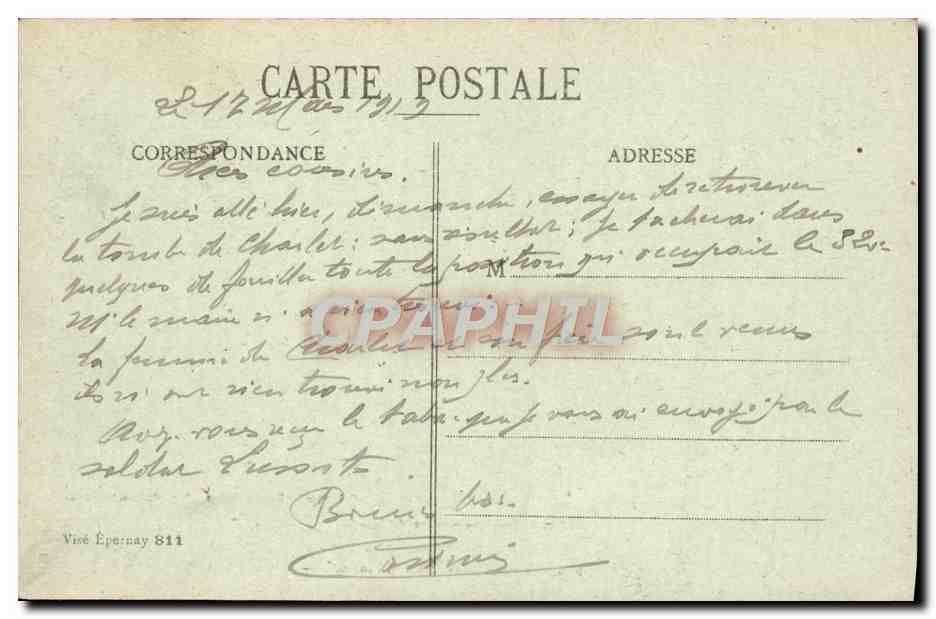 CARTE POSTALE
Le 17 Mars 1919
CORRESPONDANCE
ADRESSE
Mes cousins.
Je suis allé hier, dimanche, essayer de retrouver
la tombe de Charles: sans résultat; Je tacherai dans
quelques de fouiller toute la position qui occupait le
M
Mr le maire n'a rien trouvé.
La femme de Charles et son frère sont venus
ils n'ont rien trouvé non plus.
Avez-vous reçu le tabac que je vous ai envoyé par le
soldat
CPAPHIL
Visé Épernay 811